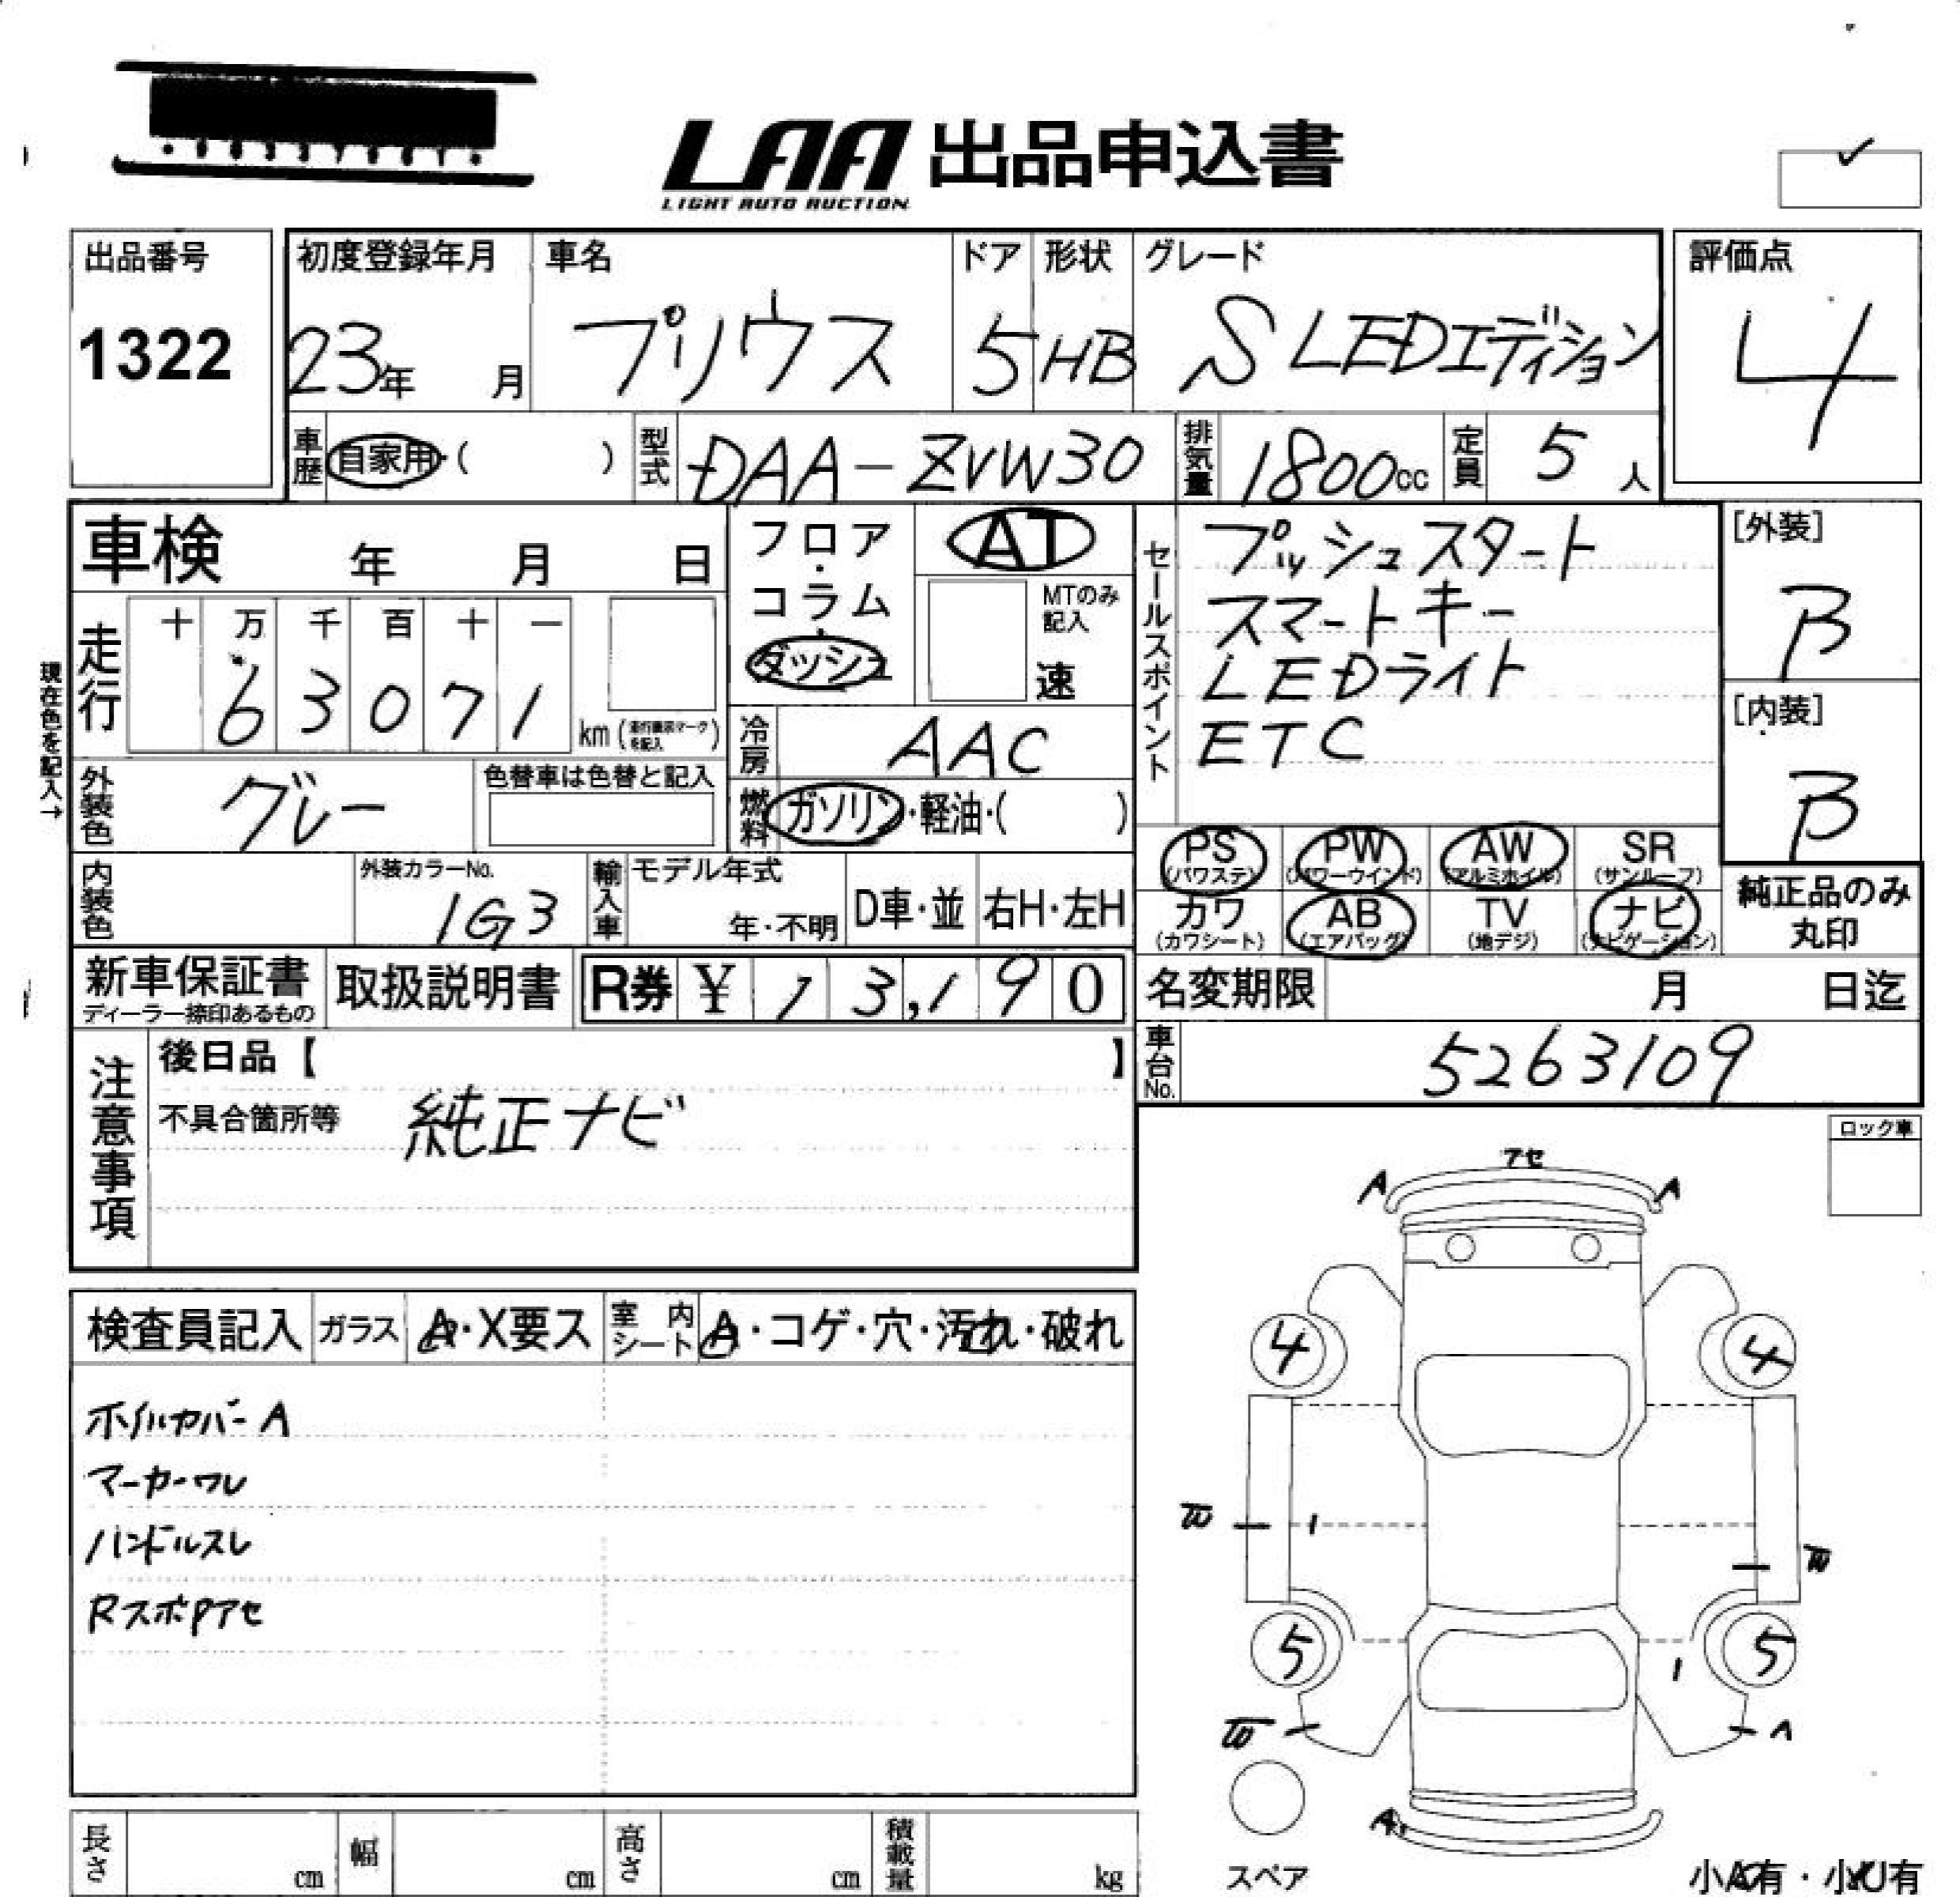 LAA 出品申込書
LIGHT AUTO AUCTION
出品番号 1322
初度登録年月 23年 月
車名 プリウス
ドア 5
形状 HB
グレード S LEDエディション
評価点 4
車歴 自家用・( )
型式 DAA-ZVW30
排気量 1800cc
定員 5人
車検 年 月 日
フロア・コラム・ダッシュ
AT
MTのみ記入
速
セールスポイント
プッシュスタート
スマートキー
LEDライト
ETC
[外装] B
[内装] B
現在色を記入→
走行 十 万 千 百 十 一
63071 km (走行距離マークを記入)
冷房 AAC
外装色 グレー
色替車は色替と記入
燃料 ガソリン・軽油・( )
PS (パワステ)
PW (パワーウインド)
AW (アルミホイル)
SR (サンルーフ)
カワ (カワシート)
AB (エアバッグ)
TV (地デジ)
ナビ (ナビゲーション)
純正品のみ丸印
内装色
外装カラーNo. 1G3
輸入車
モデル年式 年・不明
D車・並
右H・左H
新車保証書
ディーラー捺印あるもの
取扱説明書
R券 ¥ 13,190
名変期限 月 日迄
車台No. 5263109
注意事項
後日品【 】
不具合箇所等 純正ナビ
ロック車
アセ
A A
検査員記入 ガラス A・X要ス 室内シート A・コゲ・穴・汚れ・破れ
ホイルカバーA
マーカーワレ
ハンドルスレ
RスポPアセ
4 4
5 5
A
スペア
小A有・小U有
長さ cm 幅 cm 高さ cm 積載量 kg